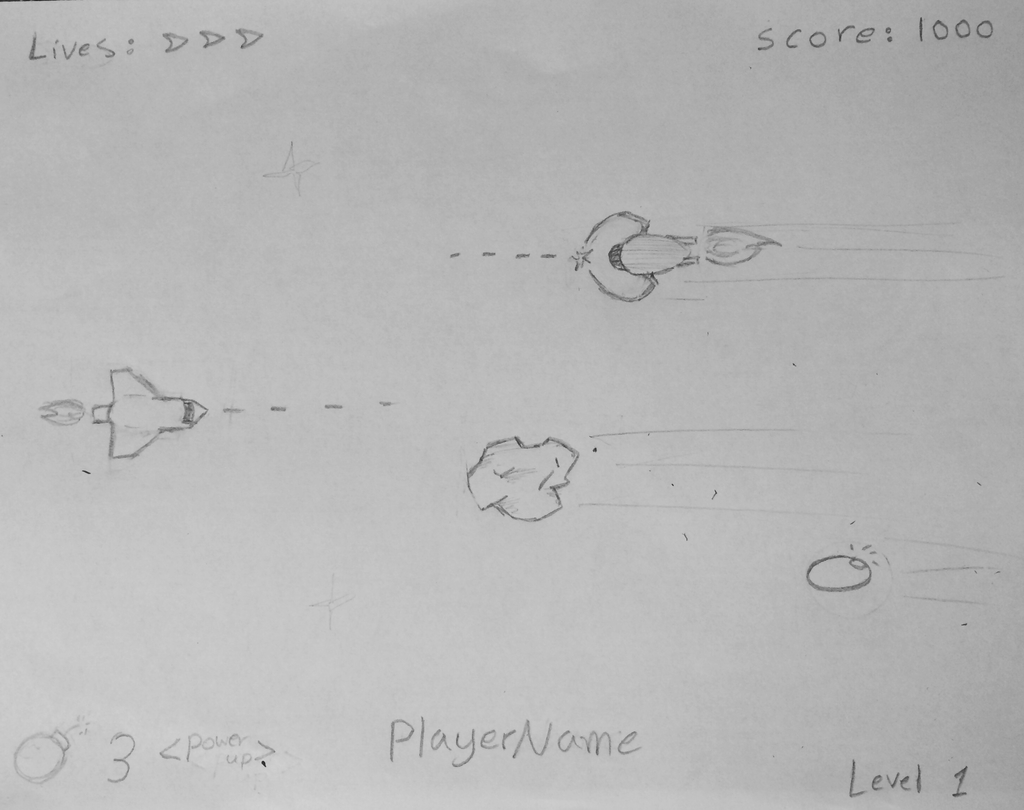 Lives:
score: 1000
3 <Power
up>
PlayerName
Level 1